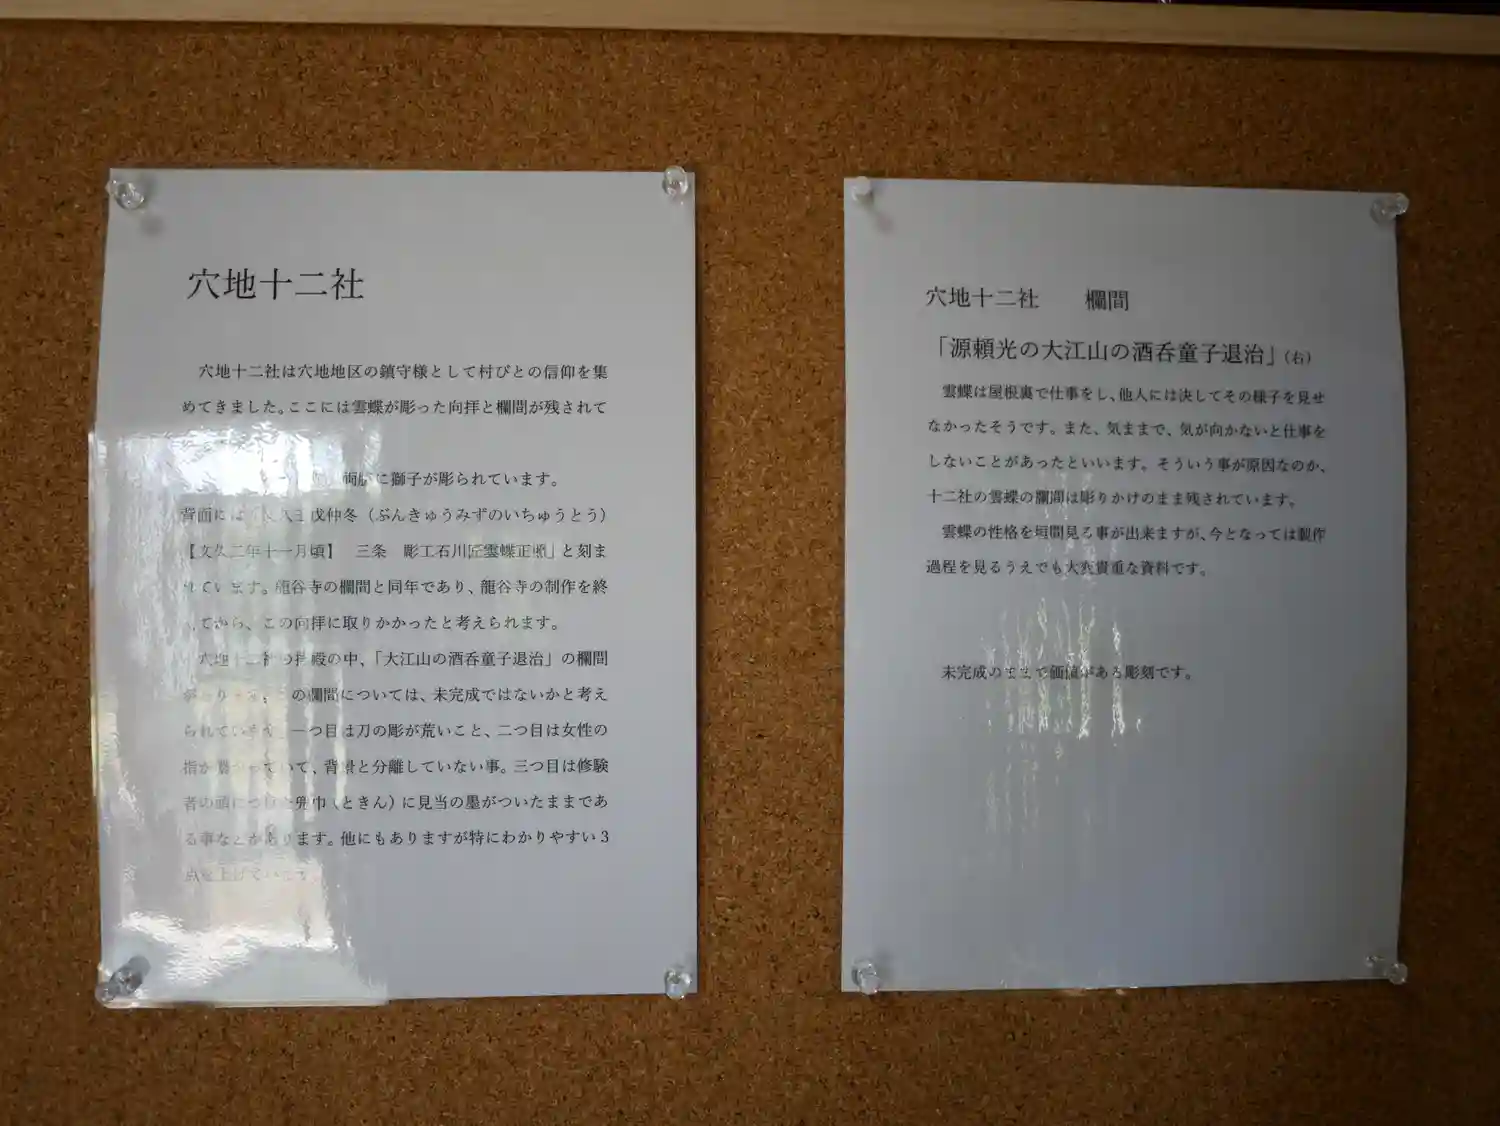 穴地十二社
穴地十二社は穴地地区の鎮守様として村びとの信仰を集
めてきました。ここには雲蝶が彫った向拝と欄間が残されて
両脇に獅子が彫られています。
背面には 戌仲冬（ぶんきゅうみずのいちゅうとう）
【文久二年十一月頃】 三条 彫工石川匠雲蝶正照」と刻ま
れています。龍谷寺の欄間と同年であり、龍谷寺の制作を終
てから、この向拝に取りかかったと考えられます。
穴地十二社の拝殿の中、「大江山の酒呑童子退治」の欄間
の欄間については、未完成ではないかと考え
られています。一つ目は刀の彫が荒いこと、二つ目は女性の
指が ていて、背景と分離していない事。三つ目は修験
者の頭に 兜巾（ときん）に見当の墨がついたままであ
る事などがあります。他にもありますが特にわかりやすい３
点を上げています。
穴地十二社 欄間
「源頼光の大江山の酒呑童子退治」（右）
雲蝶は屋根裏で仕事をし、他人には決してその様子を見せ
なかったそうです。また、気ままで、気が向かないと仕事を
しないことがあったといいます。そういう事が原因なのか、
十二社の雲蝶の欄間は彫りかけのまま残されています。
雲蝶の性格を垣間見る事が出来ますが、今となっては製作
過程を見るうえでも大変貴重な資料です。
未完成のままで価値がある彫刻です。